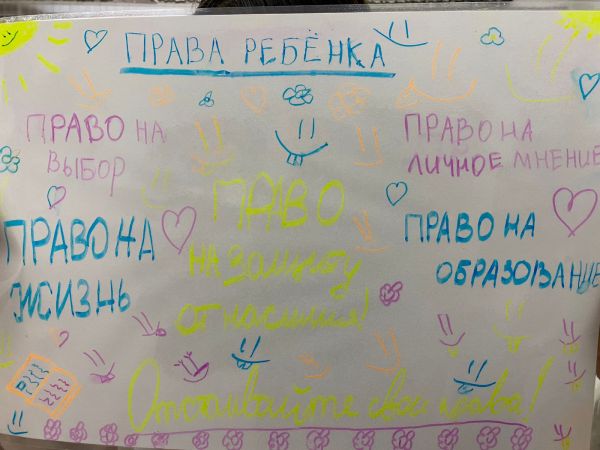 ПРАВА РЕБЁНКА
ПРАВО НА
ВЫБОР
ПРАВО НА
ЛИЧНОЕ МНЕНИЕ
ПРАВО НА
ЖИЗНЬ
ПРАВО
НА ЗАЩИТУ
ОТ НАСИЛИЯ!
ПРАВО НА
ОБРАЗОВАНИЕ
Отстаивайте свои права!